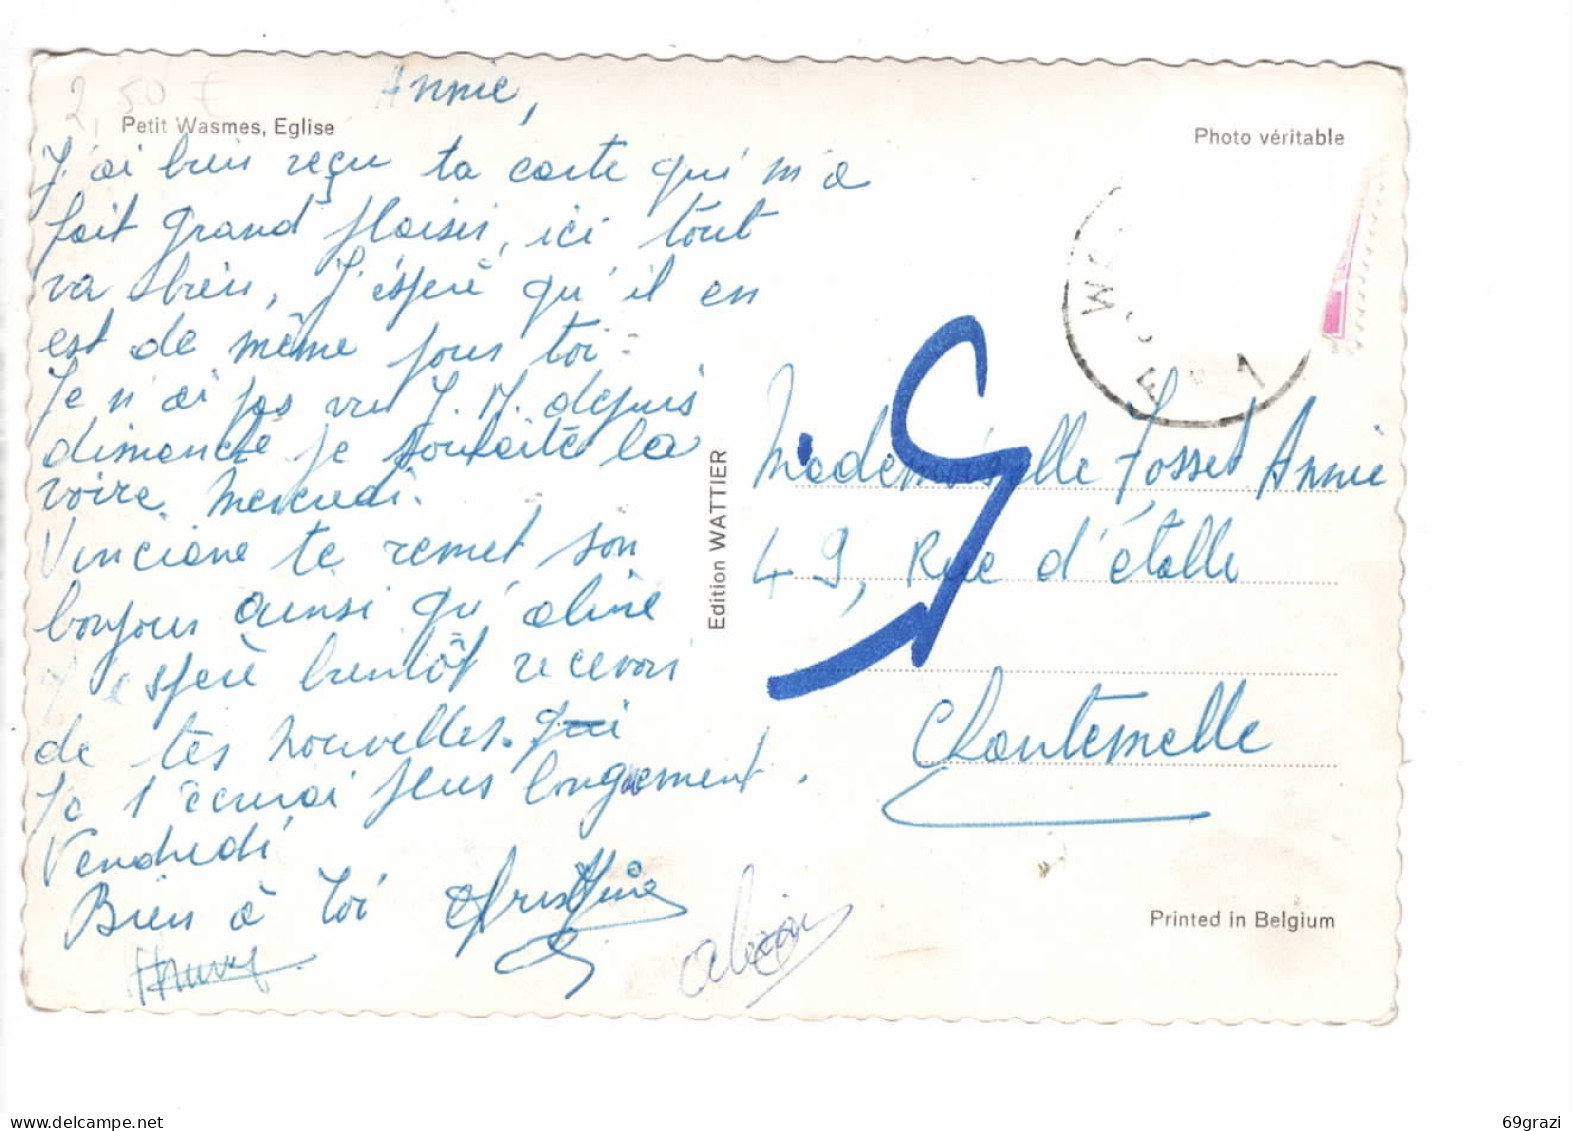 2,50 €
Annie,
Petit Wasmes, Eglise
J'ai bien reçu ta carte qui m'a
fait grand plaisir, ici tout
va bien, J'éspère qu'il en
est de même pour toi.
Je n'ai pas vu J. M. depuis
dimanche je souhaite la
voire Mercredi.
Vinciane te remet son
bonjour ainsi qu'aline
J'espère bientôt recevoir
de tes nouvelles.
Je t'écrirai plus longuement.
Vendredi
Bien à toi Christine
Photo véritable
Edition WATTIER
Mademoiselle Fosset Annie
49, Rue d'étalle
Chantemelle
Printed in Belgium
69grazi
delcampe.net